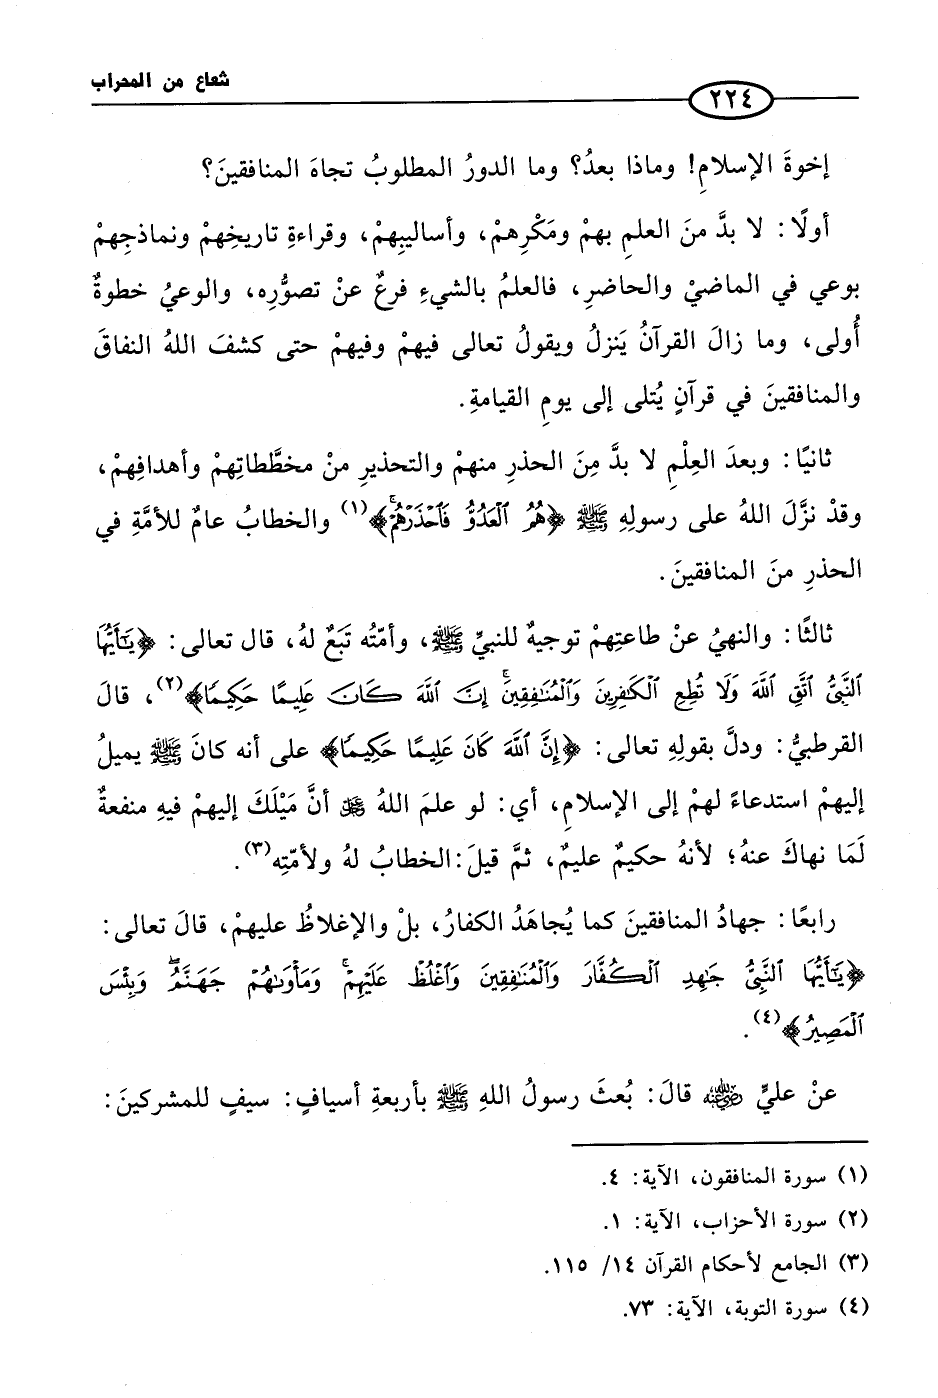 شعاع من المحراب
٢٢٤
إخوةَ الإسلامِ! وماذا بعدُ؟ وما الدورُ المطلوبُ تجاهَ المنافقينَ؟
أولًا: لا بدَّ منَ العلمِ بهمْ ومَكْرِهمْ، وأساليبِهمْ، وقراءةِ تاريخِهمْ ونماذجِهمْ
بوعي في الماضيْ والحاضرِ، فالعلمُ بالشيءِ فرعٌ عنْ تصوُّرِه، والوعيُ خطوةٌ
أُولى، وما زالَ القرآنُ يَنزلُ ويقولُ تعالى فيهمْ وفيهمْ حتى كشفَ اللهُ النفاقَ
والمنافقينَ في قرآنٍ يُتلى إلى يومِ القيامةِ.
ثانيًا: وبعدَ العِلْمِ لا بدَّ مِنَ الحذرِ منهمْ والتحذيرِ منْ مخطَّطاتِهمْ وأهدافِهمْ،
وقدْ نزَّلَ اللهُ على رسولِهِ ﷺ ﴿هُمُ ٱلْعَدُوُّ فَٱحْذَرْهُمْۚ﴾(١) والخطابُ عامٌ للأمَّةِ في
الحذرِ منَ المنافقينَ.
ثالثًا: والنهيُ عنْ طاعتِهمْ توجيهٌ للنبيِّ ﷺ، وأمّتُه تَبَعٌ لهُ، قال تعالى: ﴿يَـٰٓأَيُّهَا
ٱلنَّبِيُّ ٱتَّقِ ٱللَّهَ وَلَا تُطِعِ ٱلْكَـٰفِرِينَ وَٱلْمُنَـٰفِقِينَۚ إِنَّ ٱللَّهَ كَانَ عَلِيمًا حَكِيمًا﴾(٢)، قالَ
القرطبيُّ: ودلَّ بقولِهِ تعالى: ﴿إِنَّ ٱللَّهَ كَانَ عَلِيمًا حَكِيمًا﴾ على أنه كانَ ﷺ يميلُ
إليهمْ استدعاءً لهمْ إلى الإسلامِ، أي: لو علمَ اللهُ ﷻ أنَّ مَيْلَكَ إليهمْ فيهِ منفعةٌ
لَمَا نهاكَ عنهُ؛ لأنهُ حكيمٌ عليمٌ، ثمَّ قيلَ: الخطابُ لهُ ولأمّتِه(٣).
رابعًا: جهادُ المنافقينَ كما يُجاهَدُ الكفارُ، بلْ والإغلاظُ عليهمْ، قالَ تعالى:
﴿يَـٰٓأَيُّهَا ٱلنَّبِيُّ جَـٰهِدِ ٱلْكُفَّارَ وَٱلْمُنَـٰفِقِينَ وَٱغْلُظْ عَلَيْهِمْۚ وَمَأْوَىٰهُمْ جَهَنَّمُۖ وَبِئْسَ
ٱلْمَصِيرُ﴾(٤).
عنْ عليٍّ رضي الله عنه قالَ: بُعثَ رسولُ اللهِ ﷺ بأربعةِ أسيافٍ: سيفٍ للمشركينَ:
(١) سورة المنافقون، الآية: ٤.
(٢) سورة الأحزاب، الآية: ١.
(٣) الجامع لأحكام القرآن ١٤/ ١١٥.
(٤) سورة التوبة، الآية: ٧٣.